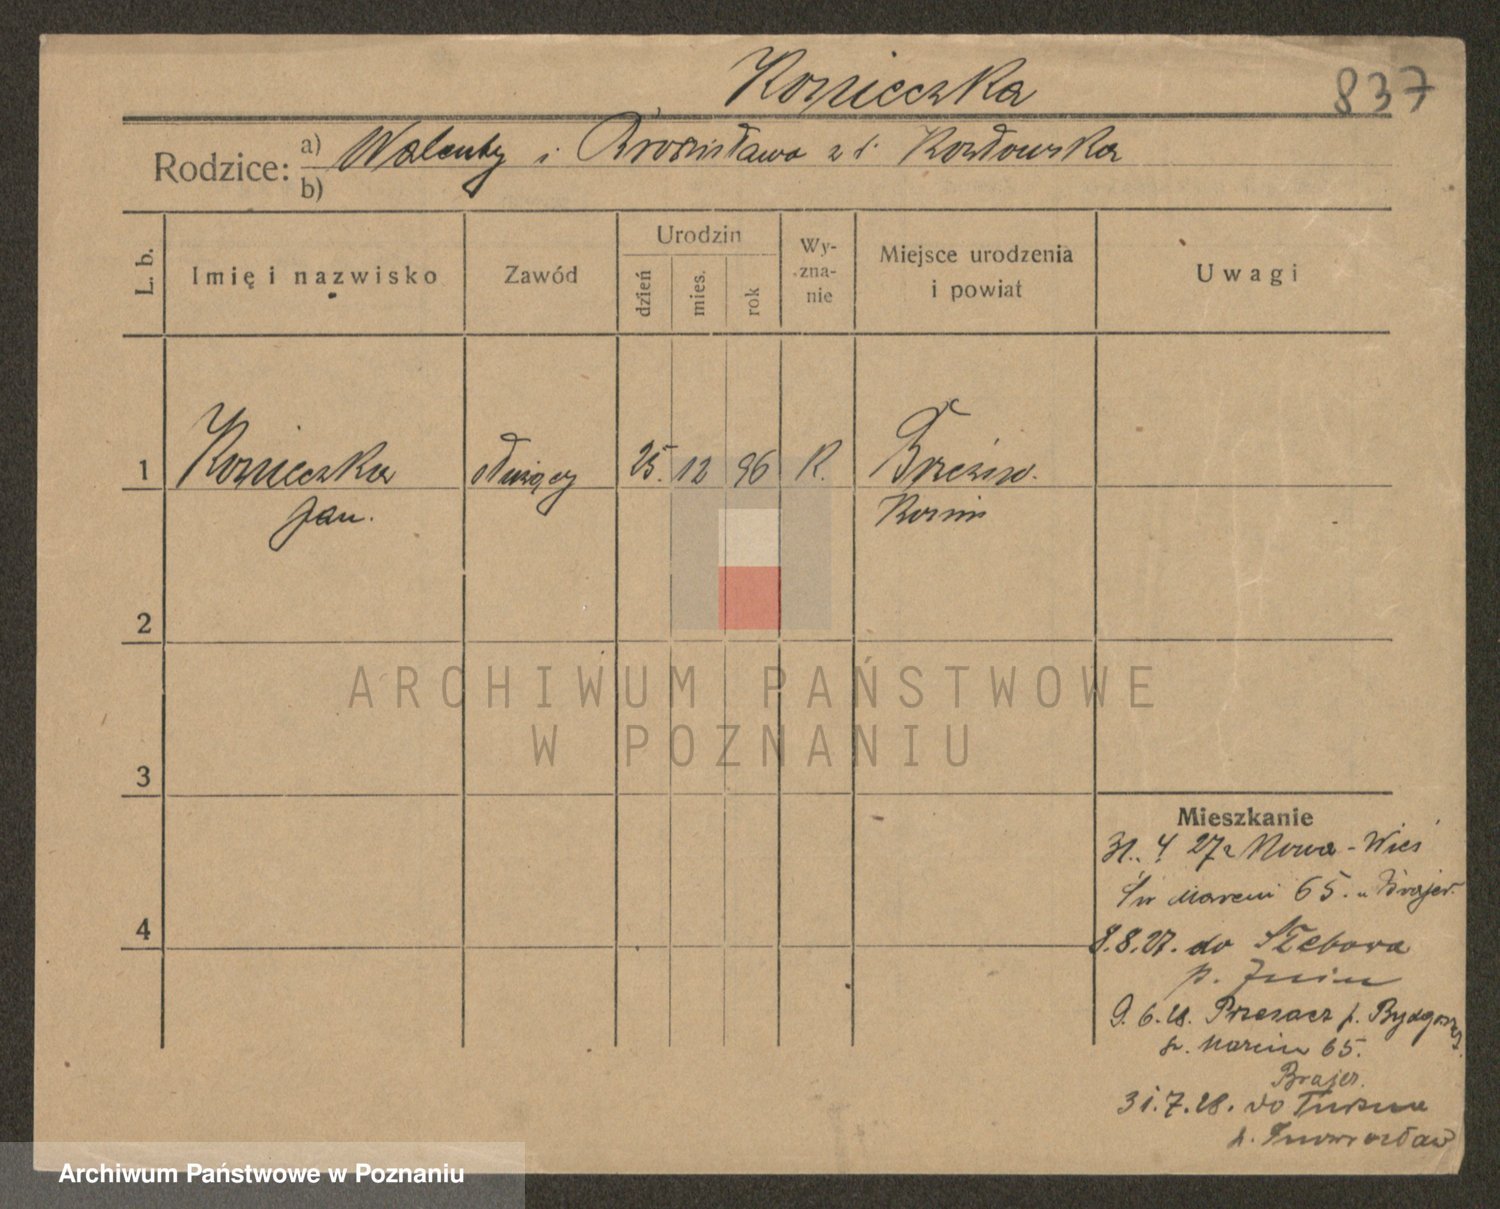 Konieczka 837
Rodzice: a) Walenty i Bronisława z d. Kozłowska
b)
L. b. Imię i nazwisko Zawód Urodzin dzień mies. rok Wy-zna-nie Miejsce urodzenia i powiat Uwagi
1 Konieczka służący 25. 12 96 R.
Jan.
2
3
4
Mieszkanie
31. 4 27 z Nowa-Wieś
Św Marcin 65. u Brajer.
8.8.27. do
p. Żnin
9. 6. 28. p. Bydgoszcz
św. Marcin 65.
Brajer.
31.7.28. do
p. Inowrocław
ARCHIWUM PAŃSTWOWE
W POZNANIU
Archiwum Państwowe w Poznaniu